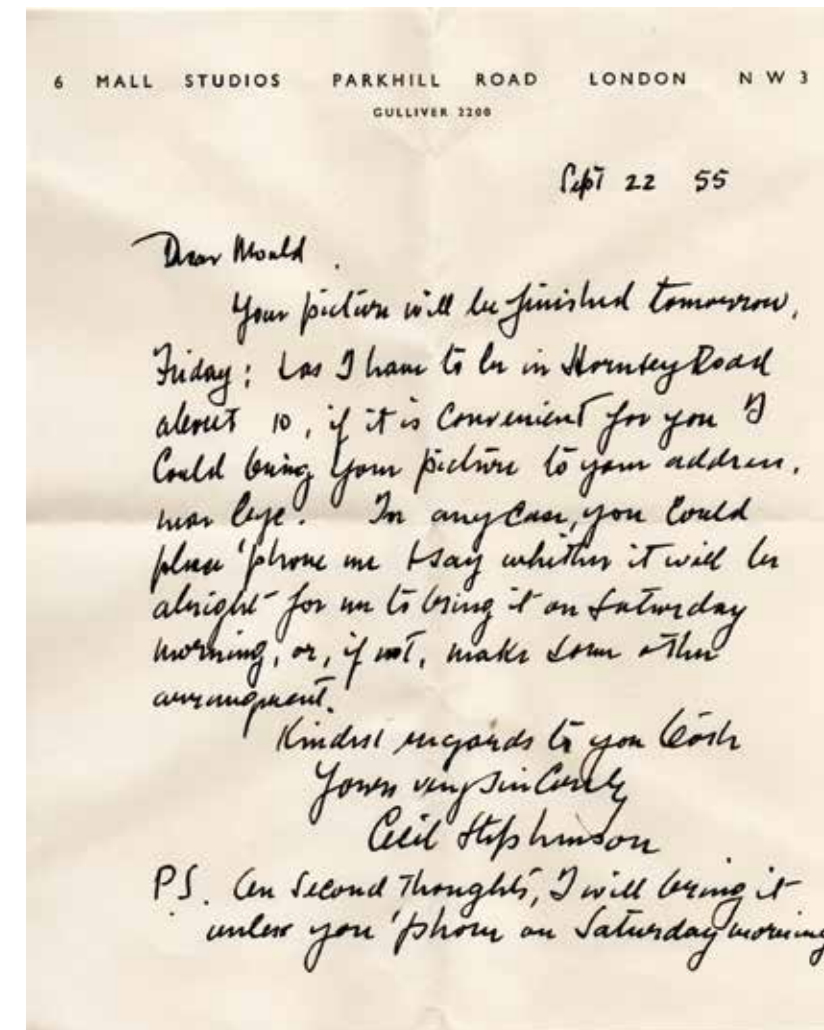 6 MALL STUDIOS PARKHILL ROAD LONDON NW3
GULLIVER 2200
Sept 22 55
Dear Mould
Your picture will be finished tomorrow,
Friday: & as I have to be in Hornsey Road
about 10, if it is convenient for you I
Could bring your picture to your address,
In any case, you Could
please 'phone me & say whether it will be
alright for me to bring it on Saturday
morning, or, if not, make some other
arrangment.
Kindest regards to you both
Yours very sincerely
Cecil Stephenson
PS. On Second Thoughts, I will bring it
unless you 'phone on Saturday morning